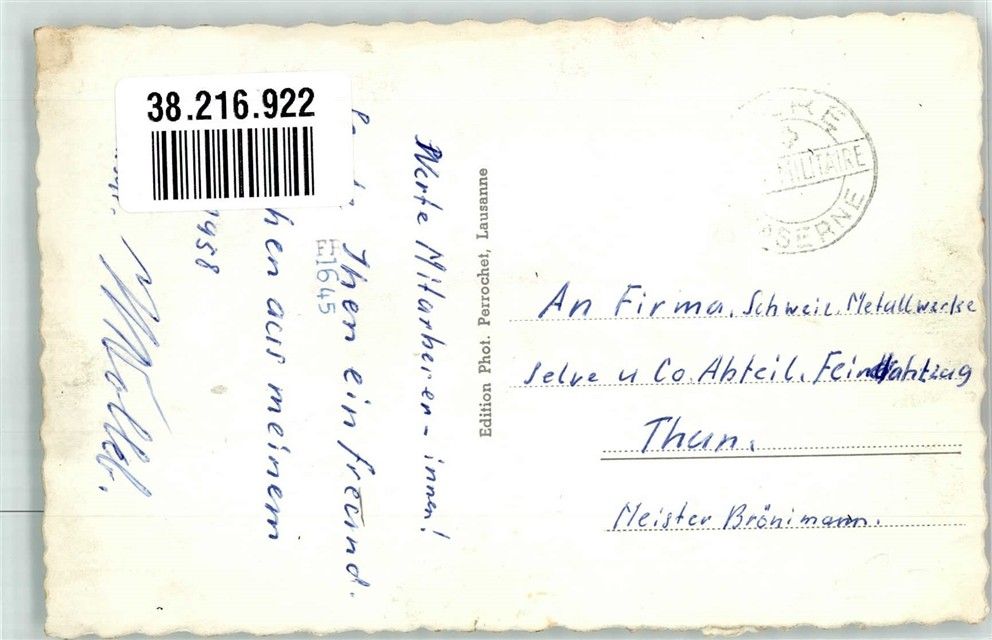 38.216.922
Werte Mitarbeiter-innen!
Ihnen ein freund.
hen aus meinem
1958
EF
E1645
Edition Phot. Perrochet, Lausanne
MILITAIRE
SERNE
An Firma. Schweiz. Metallwerke
Selve u Co Abteil. Feindrahtzug
Thun.
Meister Brönimann.